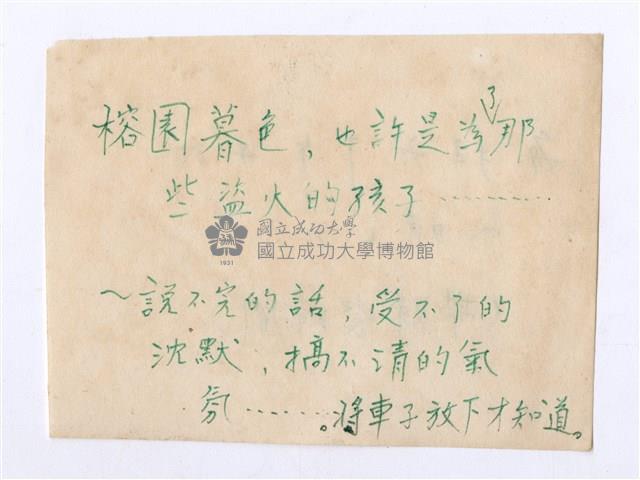 榕園暮色，也許是為了那
些盜火的孩子………
國立成功大學
國立成功大學博物館
1931
～說不完的話，受不了的
沈默，搞不清的氣
氛………。將車子放下才知道。